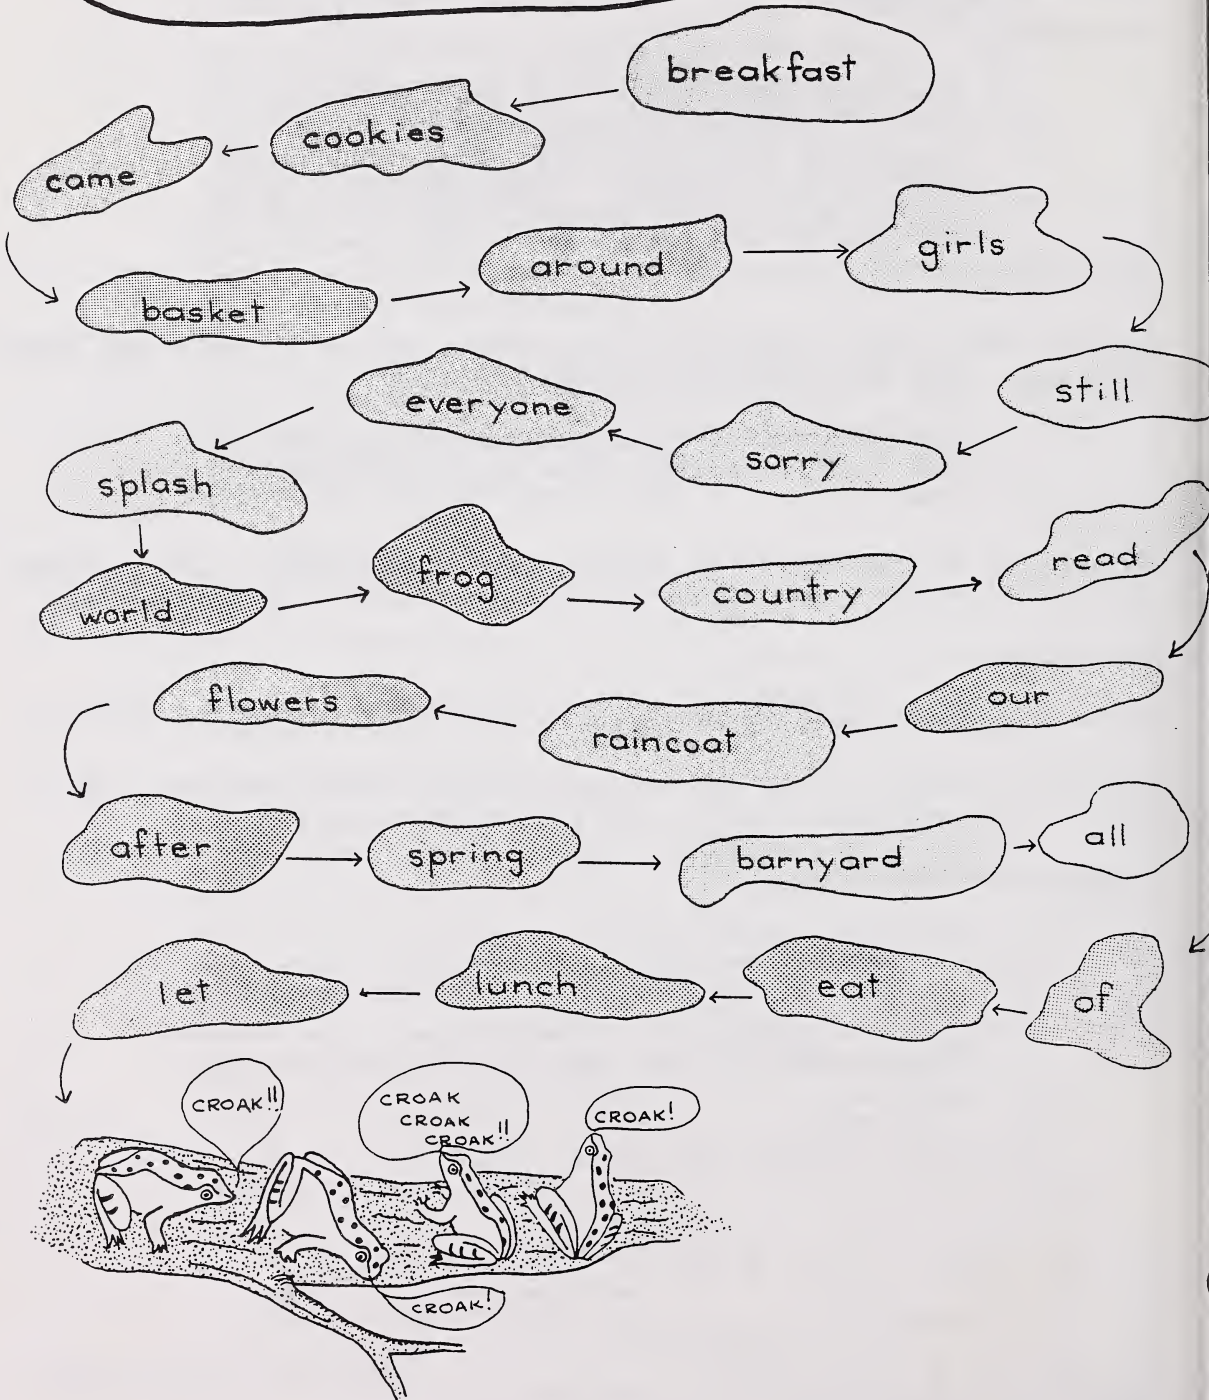 breakfast
cookies
came
basket
around
girls
still
sorry
everyone
splash
world
frog
country
read
our
raincoat
flowers
after
spring
barnyard
all
of
eat
lunch
let
CROAK!!
CROAK
CROAK
CROAK!!
CROAK!
CROAK!